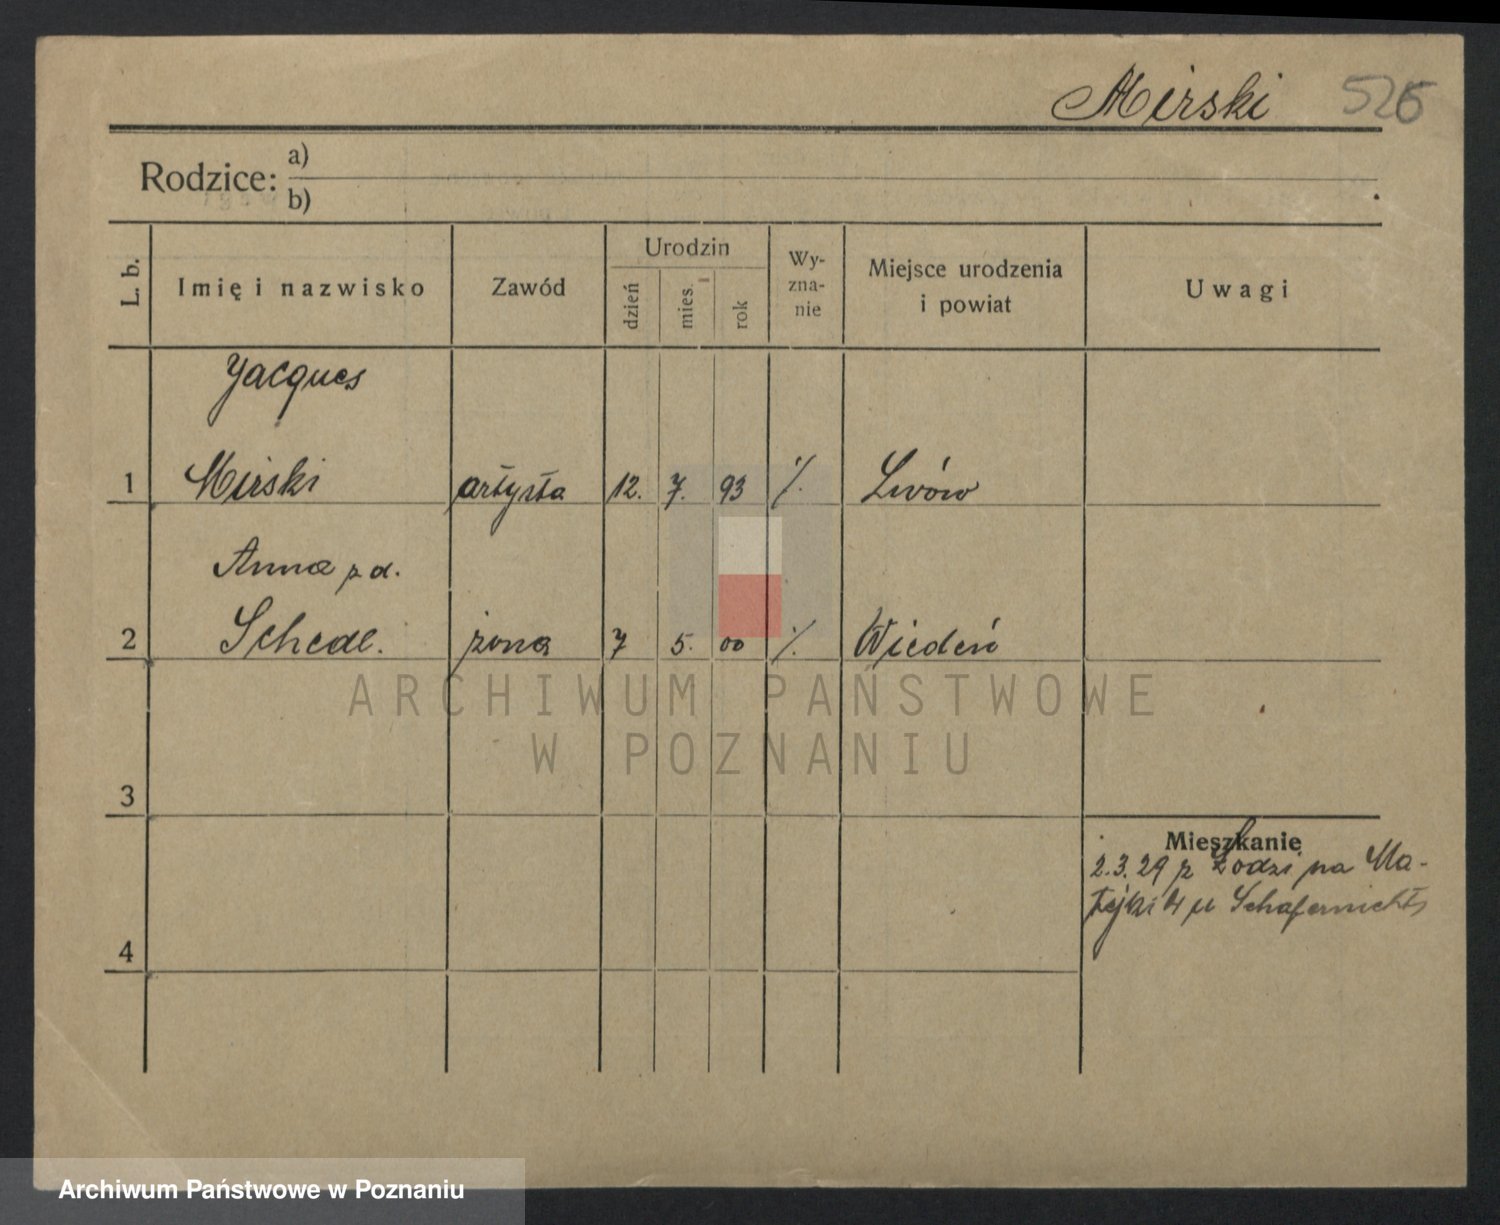 Mirski 526
Rodzice: a)
b)
L. b.
Imię i nazwisko
Zawód
Urodzin
dzień
mies.
rok
Wy-
zna-
nie
Miejsce urodzenia
i powiat
Uwagi
Jacques
1 Mirski artysta 12. 7. 93 ⁒ Lwów
Anna z d.
2 Schedl. żona 7 5. 00 ⁒ Wiedeń
ARCHIWUM PAŃSTWOWE
W POZNANIU
3
Mieszkanie
2.3.29 z Łodzi na Ma-
tejki 4 u
4
Archiwum Państwowe w Poznaniu